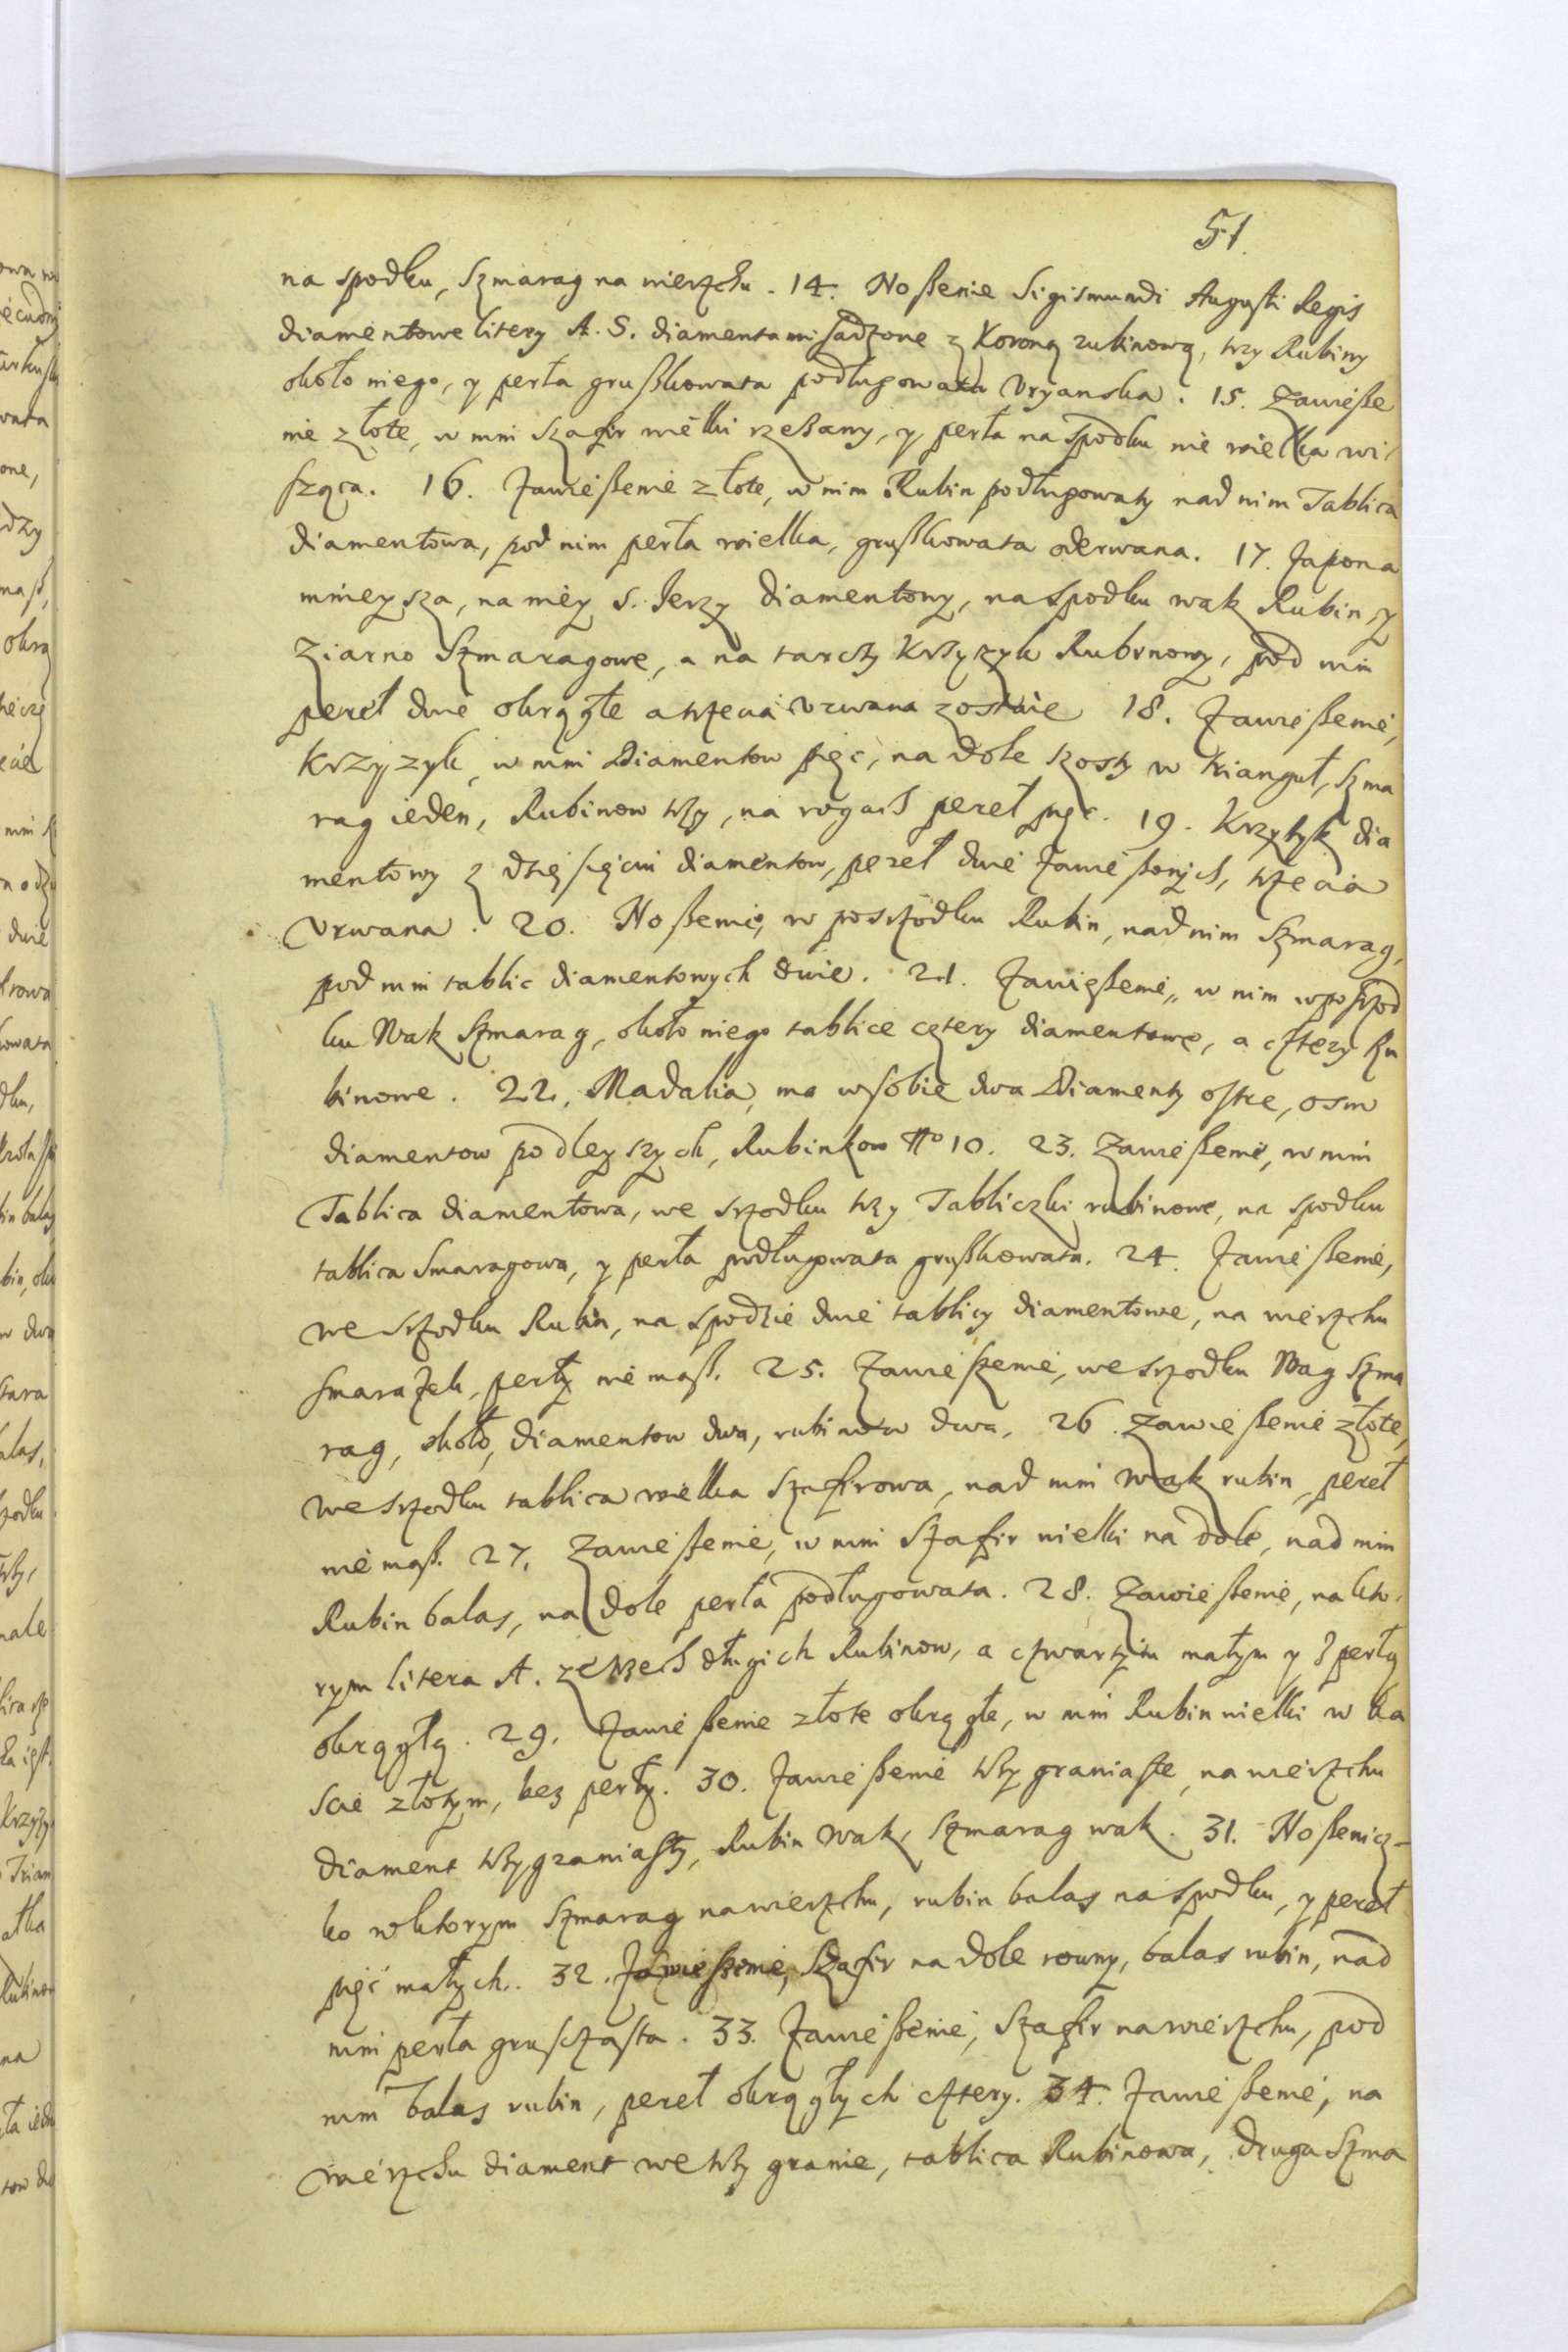 51.
na spodku, Szmarag na wierzchu. 14. Noßenie Sigismundi Augusti Regis
diamentowe litery A. S. diamentami sadzone z Koroną rubinową, trzy Rubiny
około niego, y perła grußkowata podługowata Uryanska. 15. Zawieße
nie złote, w nim szafir wielki rzeßany, y perła na spodku nie wielka wi-
sząca. 16. Zawießenie złote, w nim Rubin podługowaty nad nim Tablica
diamentowa, pod nim perła wielka, grußkowata oderwana. 17. Zapona
mnieysza, na niey S. Jerzy diamentowy, na spodku wak Rubin, y
Ziarno Szmaragowe, a na tarczy Krzyzyk Rubinowy, pod nim
pereł dwie okrągłe a trzecia Urwana zostaie 18. Zawießenie,
Krzyzyk, w nim Diamentow pięc, na dole szosty w triangul, Szma
rag ieden, Rubinow trzy, na rogach pereł pięc. 19. Krzyżyk dia
mentowy z dziesięcui diamentow, pereł dwie Zawießonych, trzecia
Urwana. 20. Noßenie, w poszrzodku Rubin, nad nim Szmarag,
pod nim tablic diamentowych dwie. 21. Zawießenie, w nim w poszrzod
ku Wak Szmarag, około niego tablice cztery diamentowe, a cztery Ru
binowe. 22. Madalia, ma w sobie dwa Diamenty ostre, osm
diamentow podleyszych, Rubinkow No 10. 23. Zawießenie, w nim
Tablica diamentowa, we srzodku trzy Tabliczki rubinowe, na spodku
tablica Smaragowa, y perła podługowata grußkowata. 24. Zawießenie,
we srzodku Rubin, na spodzie dwie tablicy diamentowe, na wierzchu
smarażek, perły nie maß. 25. Zawießenie, we srzodku Wag Szma
rag, około, diamentow dwa, rubinow dwa, 26. Zawießenie złote,
we srzodku tablica wielka Szafirowa, nad nim wak rubin, pereł
nie maß. 27. Zawießenie, w nim Szafir wielki na dole, nad nim
Rubin balas, na dole perła podługowata. 28. Zawießenie, na kto-
rym litera A. ze trzech długich Rubinow, a czwartym małym y z perłą
okrągłą. 29. Zawießenie złote okrągłe, w nim Rubin wielki w ka
scie złotym, bez perły. 30. Zawießenie trzygraniaste, na wierzchu
diament trzygraniasty, Rubin wak, Szmarag wak. 31. Noßenicz-
ko w ktorym Szmarag na wierzchu, rubin balas na spodku, y pereł
pięć małych. 32. Zawießenie, Szafir na dole rowny, balas rubin, nad
nim perła gruszczasta. 33. Zawießenie, Szafir na wierzchu, pod
nim balas rubin, pereł okrągłych cztery. 34. Zawießenie, na
wierzchu diament we trzy granie, tablica Rubinowa, druga Szma